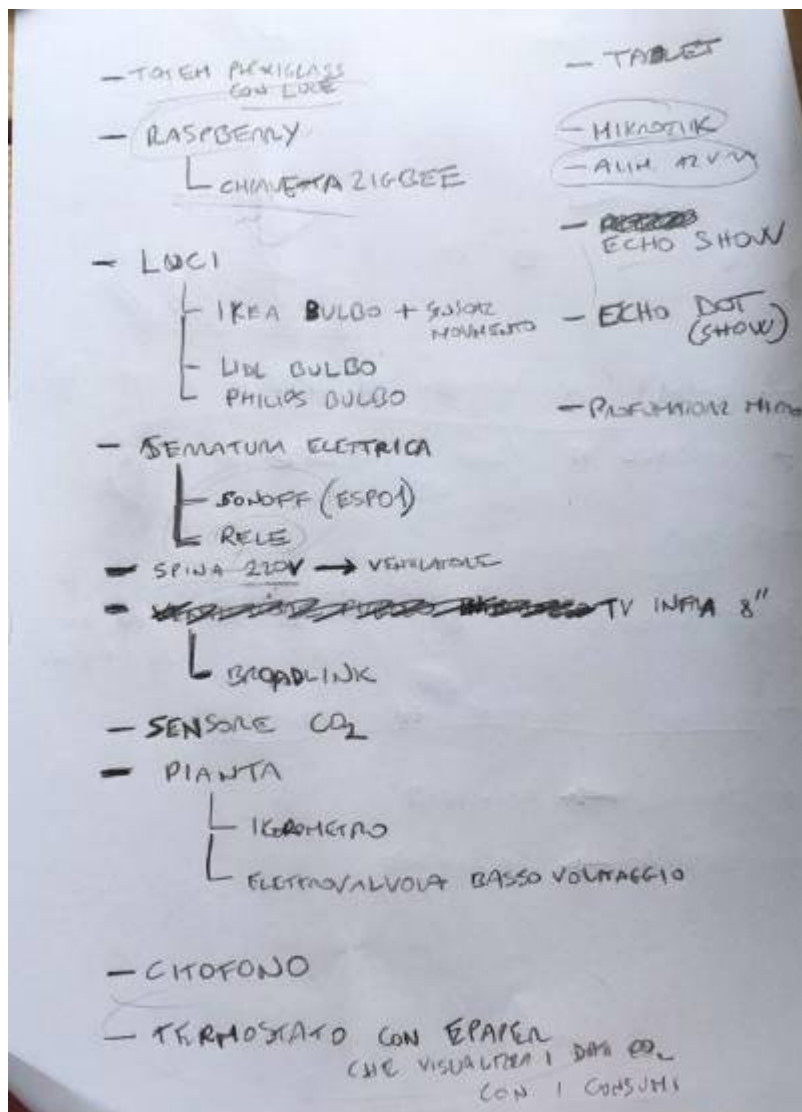 - TOTEM PLEXIGLASS
CON LUCE
- RASPBERRY
CHIAVETTA ZIGBEE
- LUCI
- IKEA BULBO + SENSORE
MOVIMENTO
- LIDL BULBO
- PHILIPS BULBO
- SERRATURA ELETTRICA
- SONOFF (ESP01)
- RELE
- SPINA 220V → VENTILATORE
- TV INFRA 8"
BROADLINK
- SENSORE CO2
- PIANTA
- IGROMETRO
ELETTROVALVOLA BASSO VOLTAGGIO
- CITOFONO
- TERMOSTATO CON EPAPER
CHE VISUALIZZA I DATI CO2
CON I CONSUMI
- TABLET
- MIKROTIK
- ALIM 12V
- ECHO SHOW
- ECHO DOT
(SHOW)
- PROFUMATORE